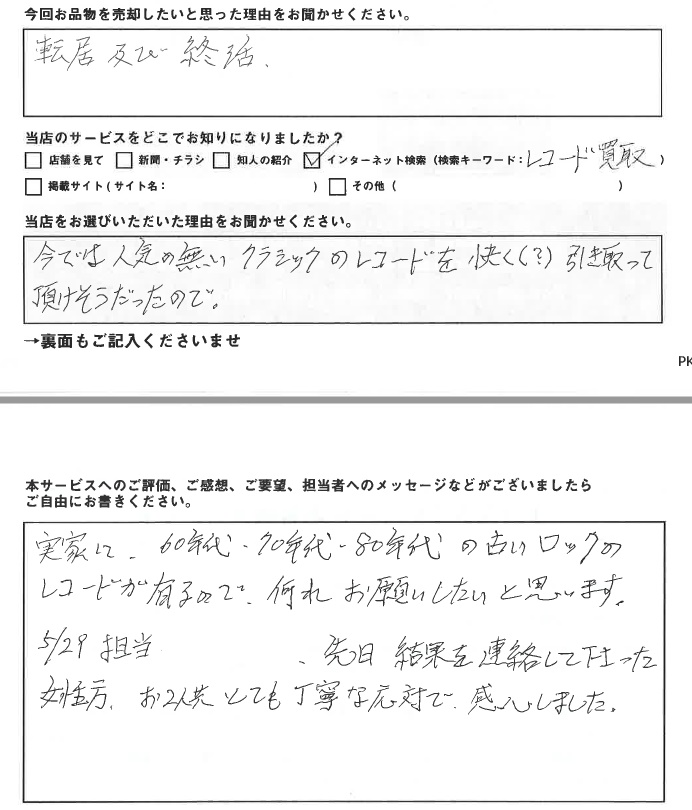 今回お品物を売却したいと思った理由をお聞かせください。
転居 及び 終活.
当店のサービスをどこでお知りになりましたか？
店舗を見て 新聞・チラシ 知人の紹介 インターネット検索（検索キーワード：レコード買取）
掲載サイト（サイト名： ） その他（ ）
当店をお選びいただいた理由をお聞かせください。
今では人気の無いクラシックのレコードを快く(?)引き取って
頂けそうだったので。
→裏面もご記入くださいませ
PK
本サービスへのご評価、ご感想、ご要望、担当者へのメッセージなどがございましたら
ご自由にお書きください。
実家に、60年代・70年代・80年代の古いロックの
レコードが有るので、何れお願いしたいと思います。
5/29 担当 、先日 結果を連絡して下さった
女性方、お2人共とても丁寧な応対で、感心しました。